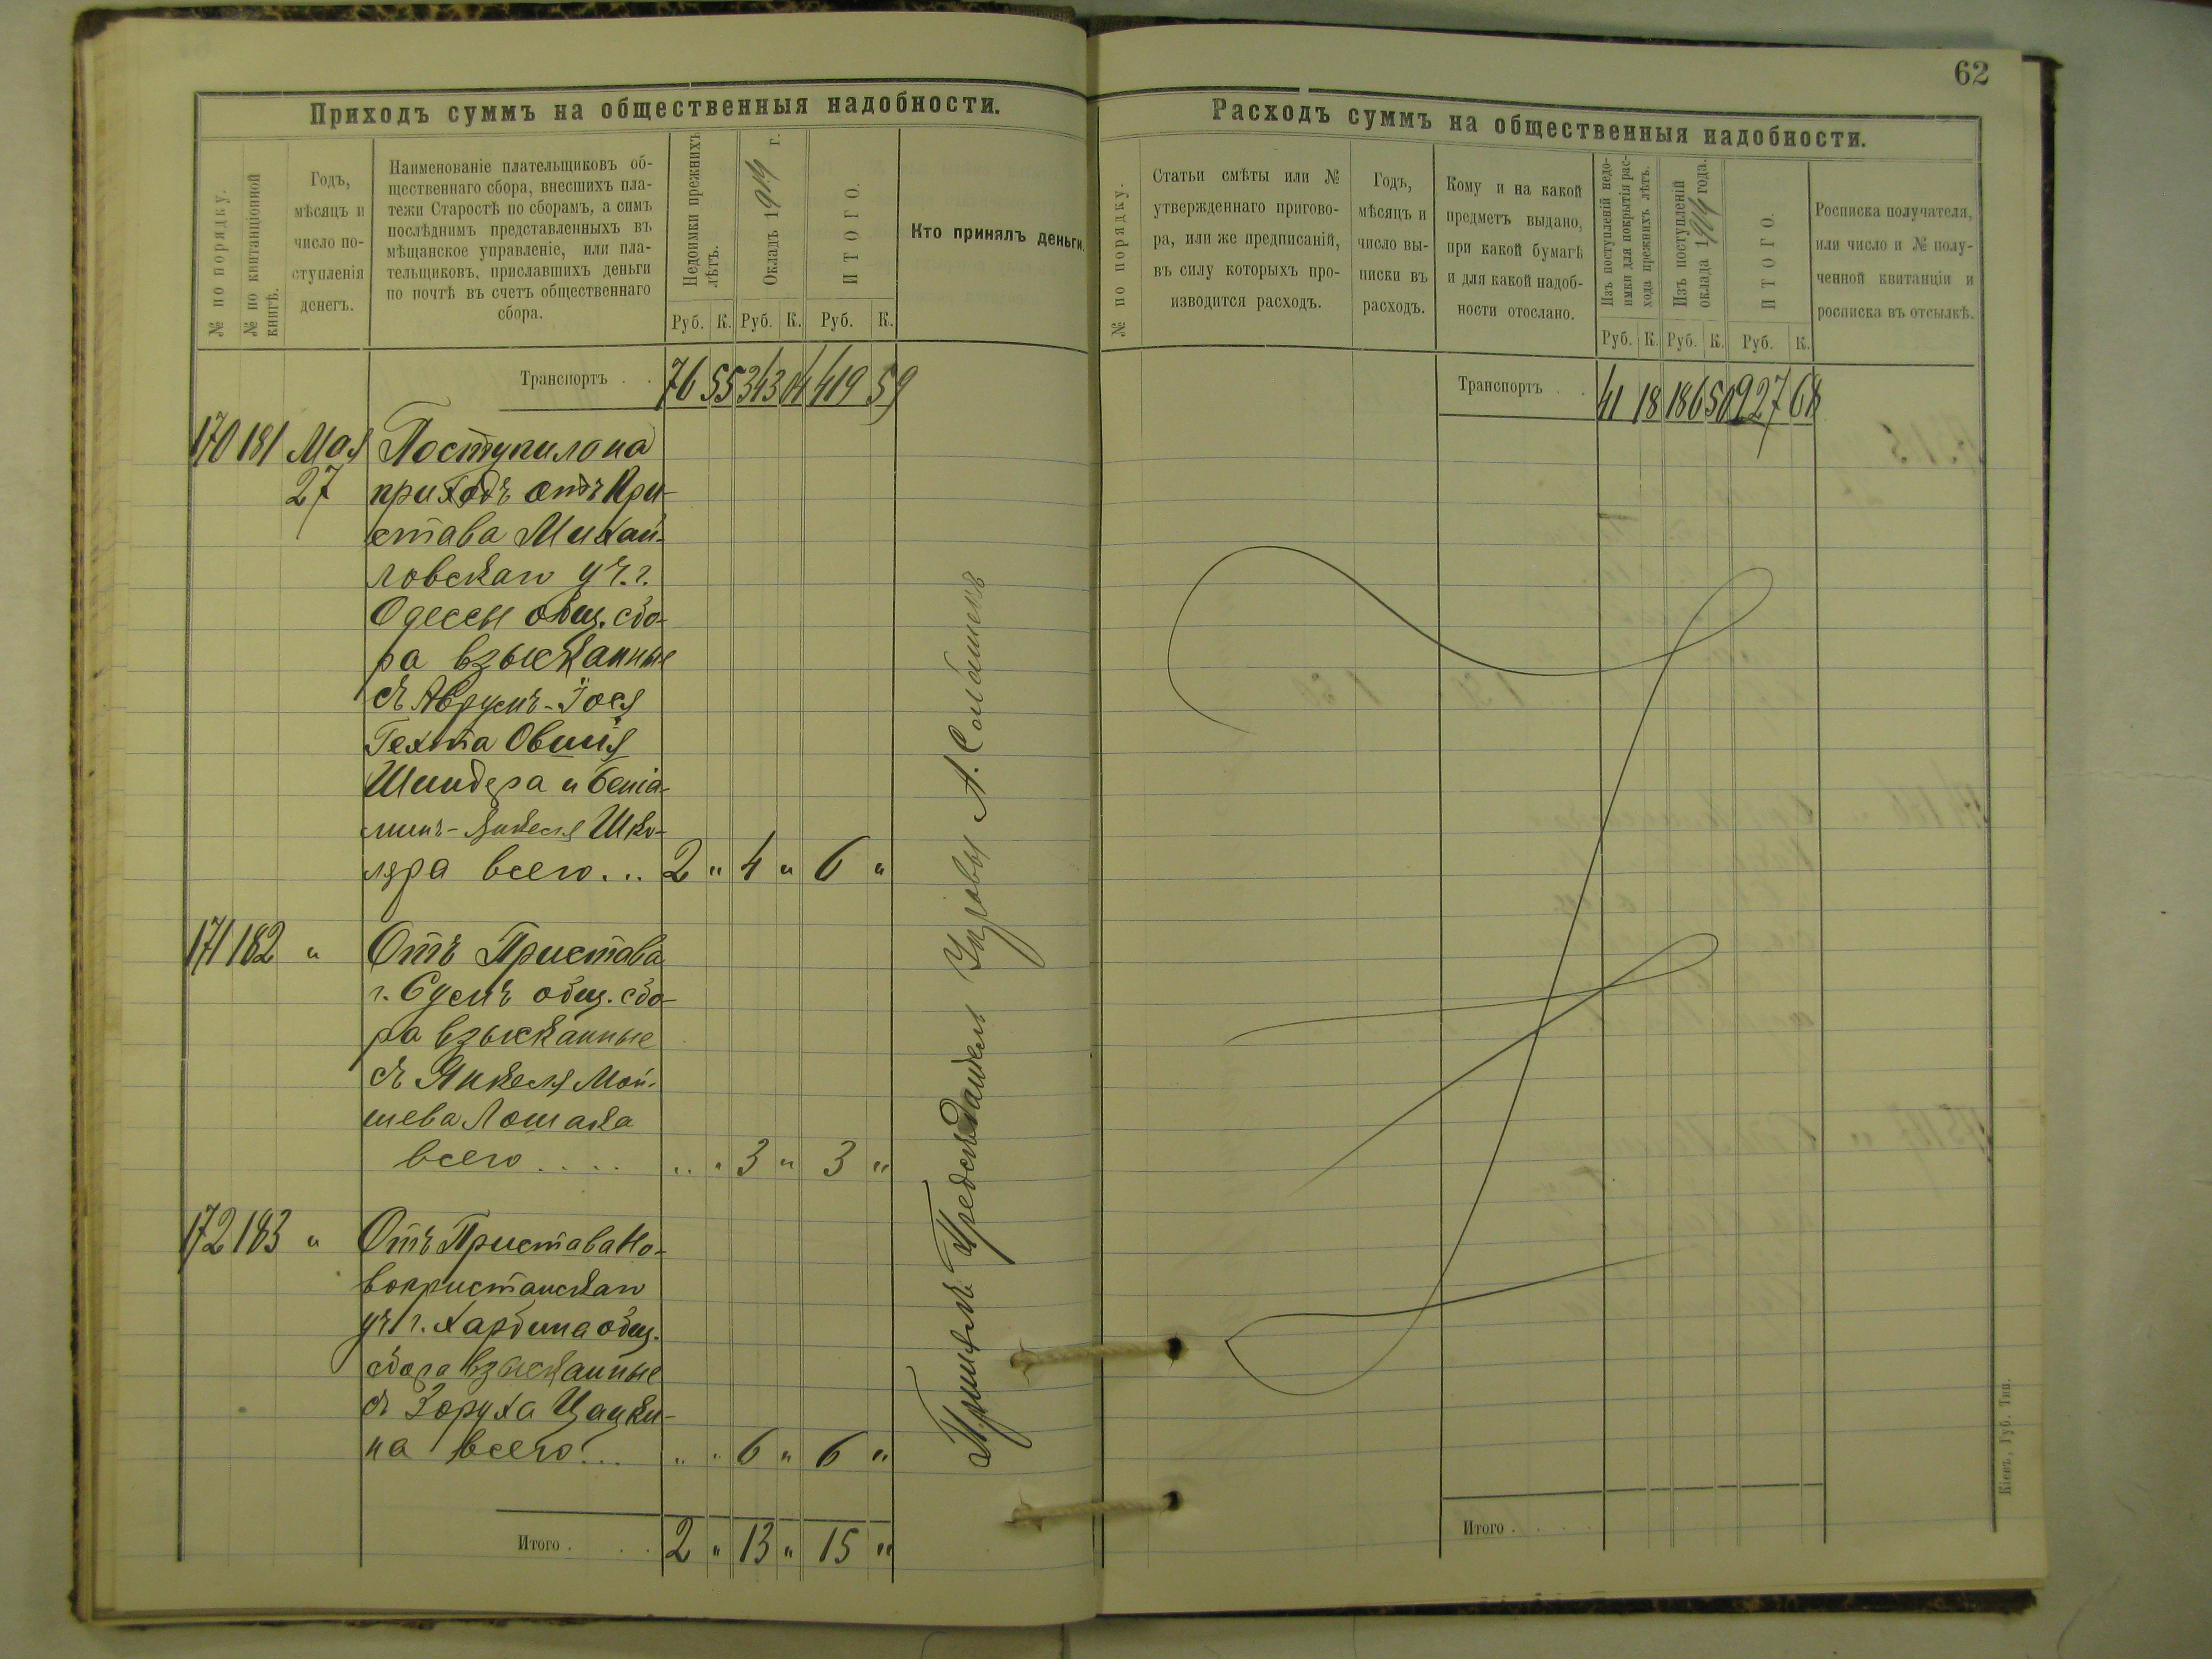 62
Приходъ суммъ на общественныя надобности.
№ по порядку.
№ по квитанціонной
книгѣ.
Годъ,
мѣсяцъ и
число по-
ступленія
денегъ.
Наименованіе плательщиковъ об-
щественнаго сбора, внесшихъ пла-
тежи Старостѣ по сборамъ, а симъ
послѣднимъ представленныхъ въ
мѣщанское управленіе, или пла-
тельщиковъ, приславшихъ деньги
по почтѣ въ счетъ общественнаго
сбора.
Недоимки прежнихъ
лѣтъ.
Окладъ 1914 г.
ИТОГО.
Кто принялъ деньги.
Руб. К. Руб. К. Руб. К.
Транспортъ . . 76 55 343 04 419 59
170 181 Мая Поступило на
27 приходъ отъ При-
става Михай-
ловскаго уч. г.
Одессы общ. сбо-
ра взысканные
съ Аврумъ-Іося
Гехта Овшія
Шиндера и Беніа-
минъ-Янкеля Шко-
ляра всего... 2 " 4 " 6 "
171 182 " Отъ Пристава
г. общ. сбо-
ра взысканные
съ Янкеля Мой-
шева Лошака
всего.... " " 3 " 3 "
172 183 " Отъ Пристава Но-
вопристанскаго
уч. г. Харбина общ.
сбора взысканные
съ Зоруха Цацки-
на всего... " " 6 " 6 "
Итого . . . 2 " 13 " 15 "
Принялъ Предсѣдатель Управы А.
Расходъ суммъ на общественныя надобности.
№ по порядку.
Статьи смѣты или №
утвержденнаго пригово-
ра, или же предписаній,
въ силу которыхъ про-
изводится расходъ.
Годъ,
мѣсяцъ и
число вы-
писки въ
расходъ.
Кому и на какой
предметъ выдано,
при какой бумагѣ
и для какой надоб-
ности отослано.
Изъ поступленій недо-
имки для покрытія рас-
хода прежнихъ лѣтъ.
Изъ поступленій
оклада 1914 года.
ИТОГО.
Росписка получателя,
или число и № полу-
ченной квитанціи и
росписка въ отсылкѣ.
Руб. К. Руб. К. Руб. К.
Транспортъ . . 41 18 186 50 227 68
Итого . . . .
Кіевъ, Губ. Тип.